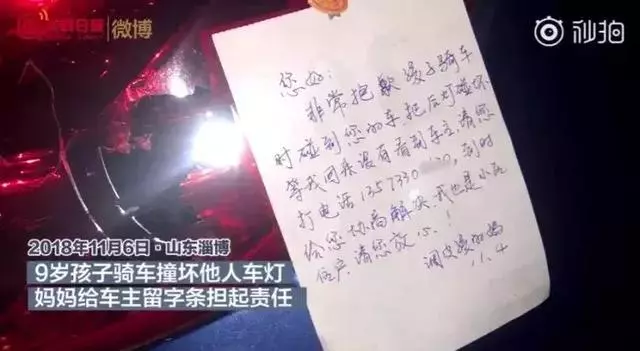 微博
秒拍
您好:
非常抱歉孩子骑车
时碰到您的车把后灯碰坏
等我回来没有看到车主,请您
打电话1357330,到时
给您协商解决,我也是小区
住户,请您放心!
调皮孩的妈
11.4
2018年11月6日·山东淄博
9岁孩子骑车撞坏他人车灯
妈妈给车主留字条担起责任